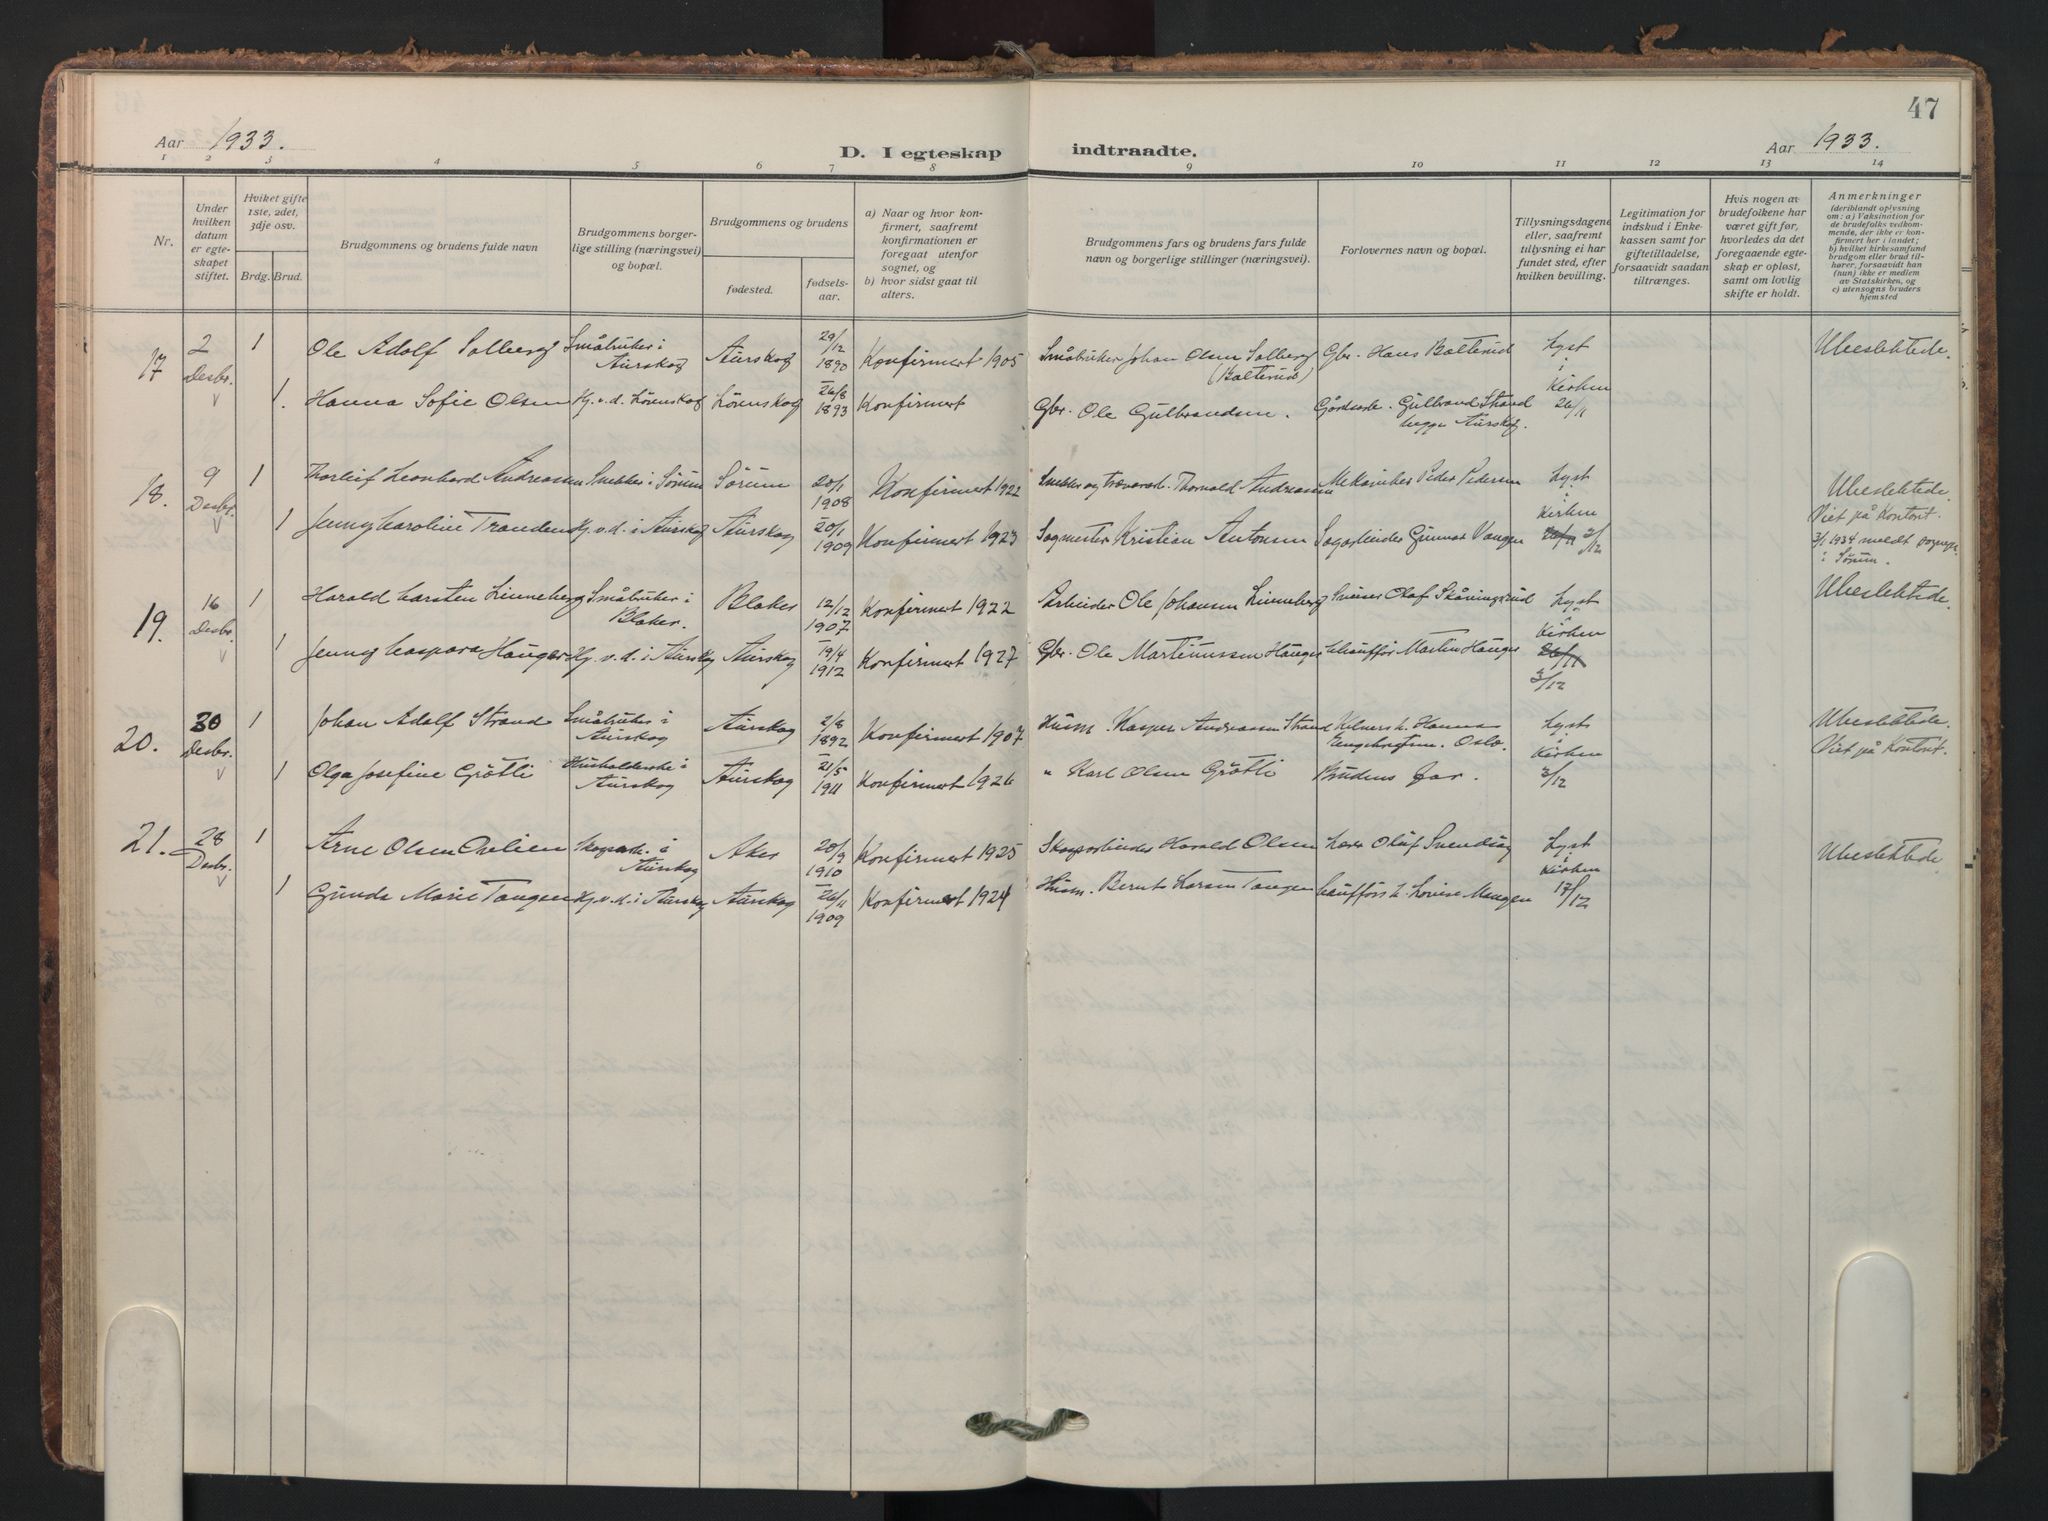 47
Aar 1933.
D. I egteskap indtraadte.
Aar 1933.
1 2 3 4 5 6 7 8 9 10 11 12 13 14
Nr.
Under hvilken datum er egteskapet stiftet.
Hviket gifte 1ste, 2det, 3dje osv.
Brdg. Brud.
Brudgommens og brudens fulde navn
Brudgommens borgerlige stilling (næringsvei) og bopæl.
Brudgommens og brudens
fødested.
fødselsaar.
a) Naar og hvor konfirmert, saafremt konfirmationen er foregaat utenfor sognet, og
b) hvor sidst gaat til alters.
Brudgommens fars og brudens fars fulde navn og borgerlige stillinger (næringsvei).
Forlovernes navn og bopæl.
Tillysningsdagene eller, saafremt tillysning ei har fundet sted, efter hvilken bevilling.
Legitimation for indskud i Enkekassen samt for giftetilladelse, forsaavidt saadan tiltrænges.
Hvis nogen av brudefolkene har været gift før, hvorledes da det foregaaende egteskap er opløst, samt om lovlig skifte er holdt.
Anmerkninger (deriblandt oplysning om: a) Vaksination for de brudefolks vedkommende, der ikke er konfirmert her i landet; b) hvilket kirkesamfund brudgom eller brud tilhører, forsaavidt han (hun) ikke er medlem av Statskirken, og c) utensogns bruders hjemsted
17 2 Desbr. 1 Ole Adolf Solberg Småbruker i Aurskog Aurskog 29/12 1890 Konfirmert 1905 Småbruker Johan Olsen Solberg (Balterud) Gbr. Hans Balterud Lyst i Kirken 26/11 Ubeslektede.
1. Hanna Sofie Olsen Hj.v.d. Lørenskog Lørenskog 26/8 1893 Konfirmert Gbr. Ole Gulbrandsen. Gulbrand Strand Aurskog.
18. 9 Desbr. 1 Thorleif Leonhard Andreassen Snekker i Sørum Sørum 20/1 1908 Konfirmert 1922 Thorvald Andreassen Mekaniker Peder Pedersen Lyst i Kirken 26/11 3/12 Ubeslektede. Viet på Kontoret. 3/1 1934 meldt sognepr. i Sørum.
1 Jenny Karoline Tranden Hj.v.d. i Aurskog Aurskog 20/1 1909 Konfirmert 1923 Sagmester Kristian Antonsen Sagarbeider Gunnar Vangen
19. 16 Desbr. 1 Harald Karsten Linneberg Småbruker i Blaker. Blaker 12/12 1907 Konfirmert 1922 Arbeider Ole Johansen Linneberg Sveiser Olaf Skåningsrud Lyst i Kirken 26/11 3/12 Ubeslektede.
1 Jenny Kaspara Hauger Hj.v.d. i Aurskog Aurskog 19/4 1912 Konfirmert 1927 Gbr. Ole Martinussen Hauger Chauffør Martin Hauger
20. 30 Desbr. 1 Johan Adolf Strand Småbruker i Aurskog Aurskog 2/8 1892 Konfirmert 1907 Husm. Kasper Andreassen Strand Kelners h. Hanna Engebretsen. Oslo. Lyst i Kirken 3/12 Ubeslektede. Viet på Kontoret.
1 Olga Josefine Grøtli Husholderske i Aurskog Aurskog 21/5 1911 Konfirmert 1926 " Karl Olsen Grøtli Brudens far.
21. 28 Desbr. 1 Arne Olsen Skogsarb. i Aurskog Aker 20/9 1910 Konfirmert 1925 Skogsarbeider Harald Olsen Lærer Oluf Lyst i Kirken 17/12 Ubeslektede
1 Gunda Marie Tangen Hj.v.d. i Aurskog Aurskog 26/11 1909 Konfirmert 1924 Husm. Bernt Larsen Tangen Chaufførs h. Lovise Mangen